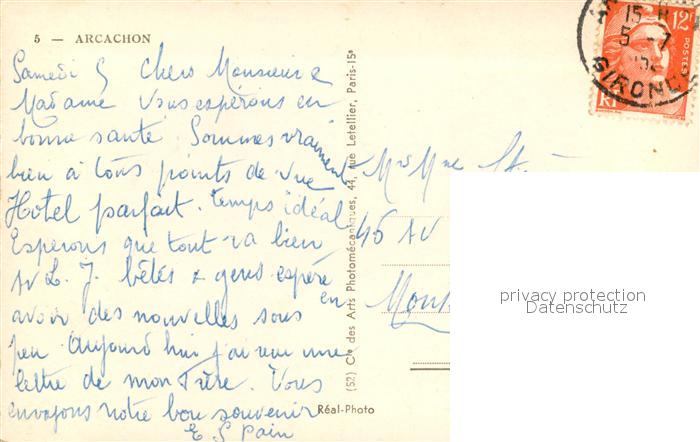 5 — ARCACHON
Samedi 5 Chers Monsieur &
Madame Vous espérons en
bonne santé. Sommes vraiment
bien à tous points de vue
Hotel parfait. temps idéal
Esperons que tout va bien
Av L. J. bêtes & gens espère
en
avoir des nouvelles sous
peu Aujourd'hui j'ai reçu une
lettre de mon Frère. Vous
envoyons notre bon souvenir
E S Pain
(52) Cie des Arts Photomécaniques, 44, rue Letellier, Paris-15e
Réal-Photo
15 H
5 - 7
52
GIRONDE
12F
POSTES
RF
Mr & Mme
45 AV
privacy protection
Datenschutz